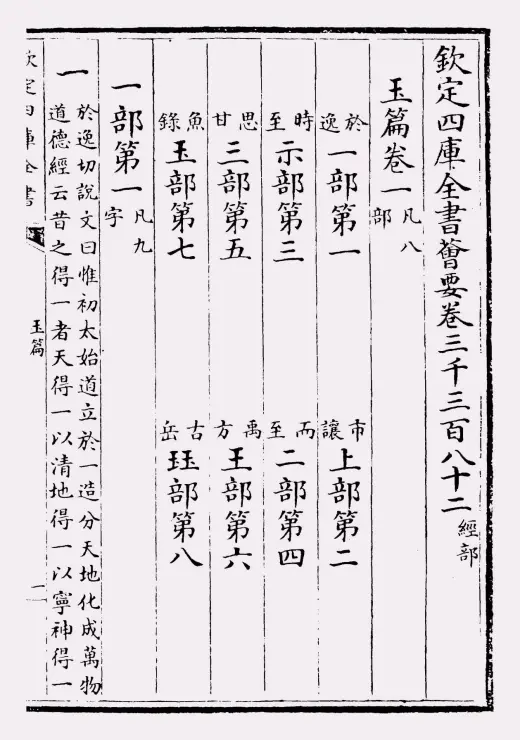 欽定四庫全書薈要卷三千三百八十二經部
玉篇卷一凡八部
於逸一部第一 市讓上部第二
時至示部第三 而至二部第四
思甘三部第五 禹方王部第六
魚錄玉部第七 古岳珏部第八
一部第一凡九字
一於逸切說文曰惟初太始道立於一造分天地化成萬物
道德經云昔之得一者天得一以清地得一以寧神得一
欽定四庫全書
玉篇
一